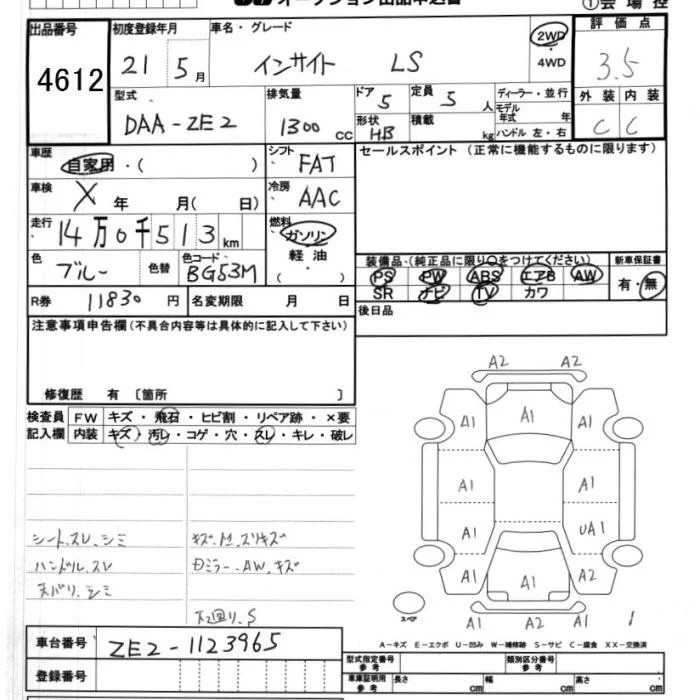 オークション出品申込書
①会場控
出品番号
4612
初度登録年月
21 5 月
車名・グレード
インサイト LS
2WD
4WD
評価点
3.5
外装 内装
C C
型式
DAA-ZE2
排気量
1300 cc
ドア 5
定員 5 人
形状 HB
積載 kg
ディーラー・並行
モデル年式 年
ハンドル 左・右
車歴
自家用・( )
シフト FAT
車検
X 年 月( 日)
冷房 AAC
走行
14万0千513 km
燃料
ガソリン
軽油
( )
色
ブルー
色替
色コード
BG53M
R券 11830 円
名変期限 月 日
セールスポイント (正常に機能するものに限ります)
装備品 (純正品に限り○をつけてください)
PS PW ABS エアB AW
SR ナビ TV カワ
新車保証書
有・無
後日品
注意事項申告欄(不具合内容等は具体的に記入して下さい)
修復歴 有 〔箇所 〕
検査員
記入欄
FW キズ・飛石・ヒビ割・リペア跡・×要
内装 キズ・汚レ・コゲ・穴・スレ・キレ・破レ
シート.スレ.シミ
ハンドル.スレ
天バリ.シミ
A2 A2
A1 A1 A1
A1 A1
A1 UA1
A1 A1 A2
A2 A2
スペア
A-キズ E-エクボ U-凹み W-補修跡 S-サビ C-腐食 XX-交換済
車台番号 ZE2-1123965
登録番号
型式指定番号
参考
類別区分番号
参考
車庫証明用
参考
長さ cm 幅 cm 高さ cm